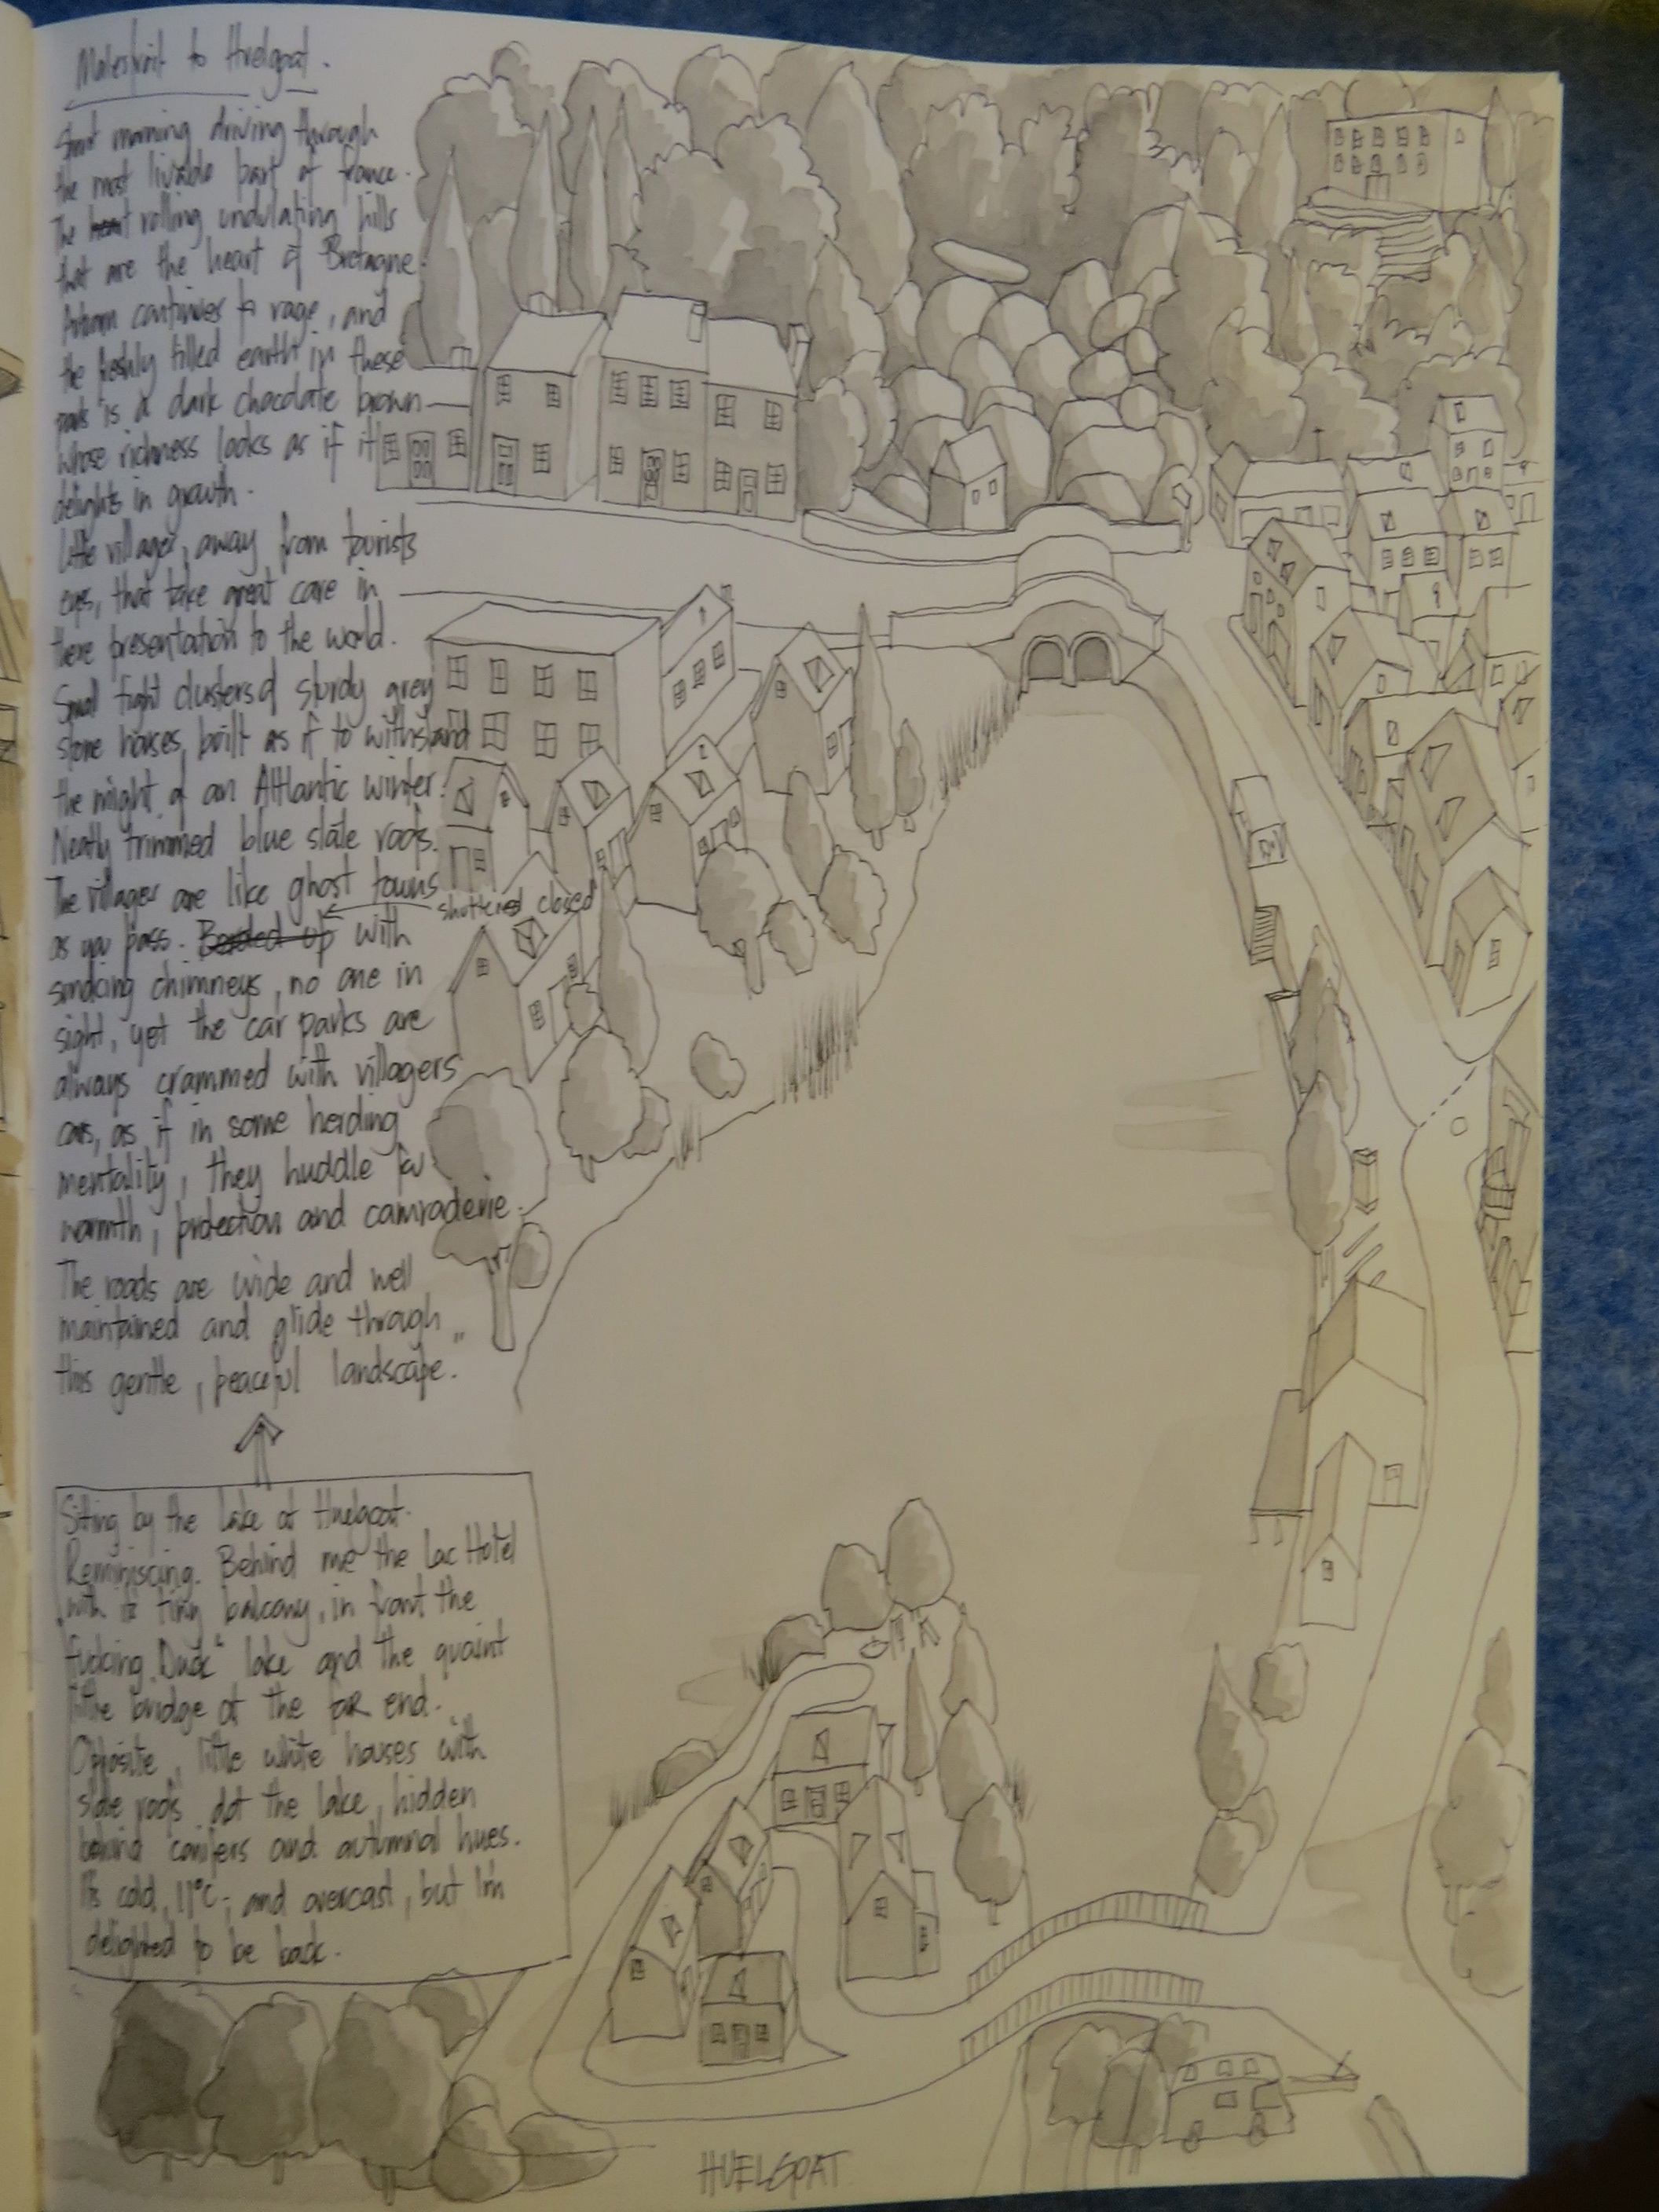 Malestroit to Huelgoat.
Short morning driving through
the most livable part of france.
The heart rolling undulating hills
that are the heart of Bretagne.
Autumn continues to rage, and
the freshly tilled earth in these
parts is a dark chocolate brown
whose richness looks as if it
delights in growth.
Little villages, away from tourists
eyes, that take great care in
there presentation to the world.
Small tight clusters of sturdy grey
stone houses, built as if to withstand
the might of an Atlantic winter.
Neatly trimmed blue slate roofs.
The villages are like ghost towns
shuttered closed
as you pass. Boarded up with
smoking chimneys, no one in
sight, yet the car parks are
always crammed with villagers
cars, as if in some herding
mentality, they huddle for
warmth, protection and camraderie.
The roads are wide and well
maintained and glide through
this gentle, peaceful landscape."
Sitting by the lake at Huelgoat.
Reminiscing. Behind me the Lac Hotel
with it tiny balcony, in front the
"fucking Duck" lake and the quaint
little bridge at the far end.
Opposite, little white houses with
slate roofs dot the lake, hidden
behind conifers and autumnal hues.
It's cold, 11°C, and overcast, but I'm
delighted to be back.
HUELGOAT